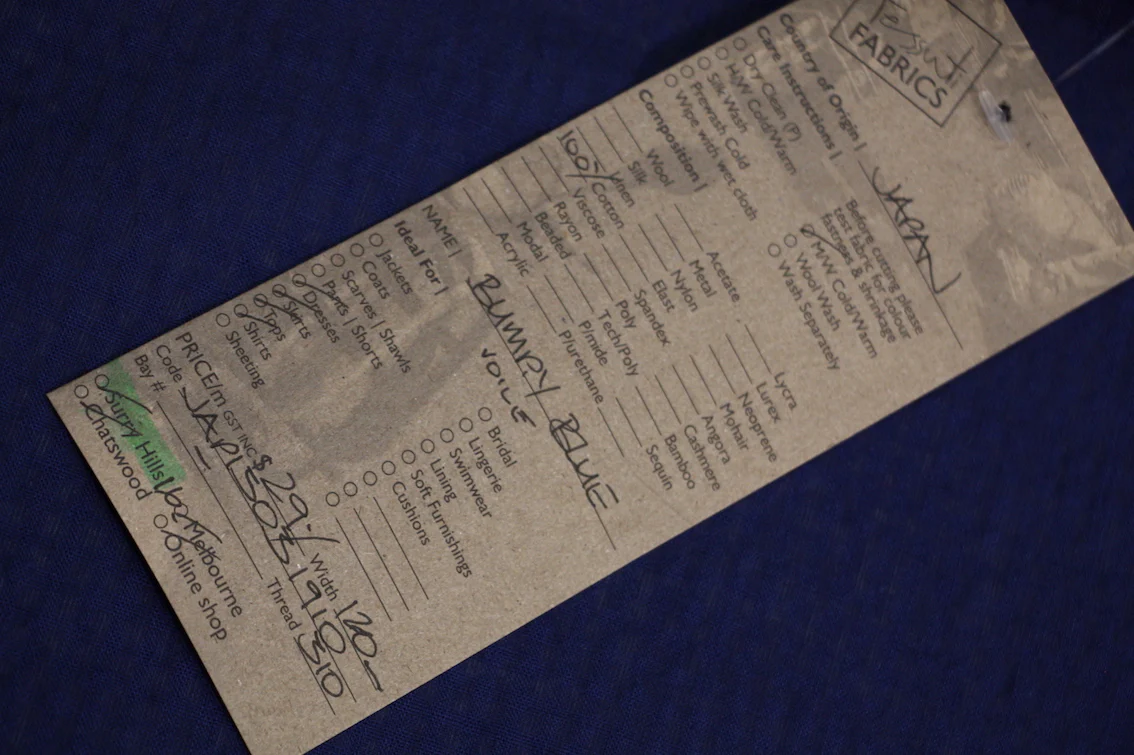 Tessuti
FABRICS
Country of Origin | JAPAN
Care Instructions |
Dry Clean (P)
H/W Cold/Warm
Silk Wash
Prewash Cold
Wipe with wet cloth
Before cutting please
test fabric for colour
fastness & shrinkage
M/W Cold/Warm
Wool Wash
Wash Separately
Composition |
Wool
Silk
Linen
100% Cotton
Viscose
Rayon
Beaded
Modal
Acrylic
Acetate
Metal
Nylon
Elast
Spandex
Poly
Tech/Poly
P/mide
P/urethane
Lycra
Lurex
Neoprene
Mohair
Angora
Cashmere
Bamboo
Sequin
NAME | BUMPY BLUE
VOILE
Ideal For |
Jackets
Coats
Scarves | Shawls
Pants | Shorts
Dresses
Skirts
Tops
Shirts
Sheeting
Bridal
Lingerie
Swimwear
Lining
Soft Furnishings
Cushions
PRICE/m GST INC $ 29 Width 120
Code JAP150S1910
Bay # Thread 310
Surry Hills Melbourne
Chatswood Online shop